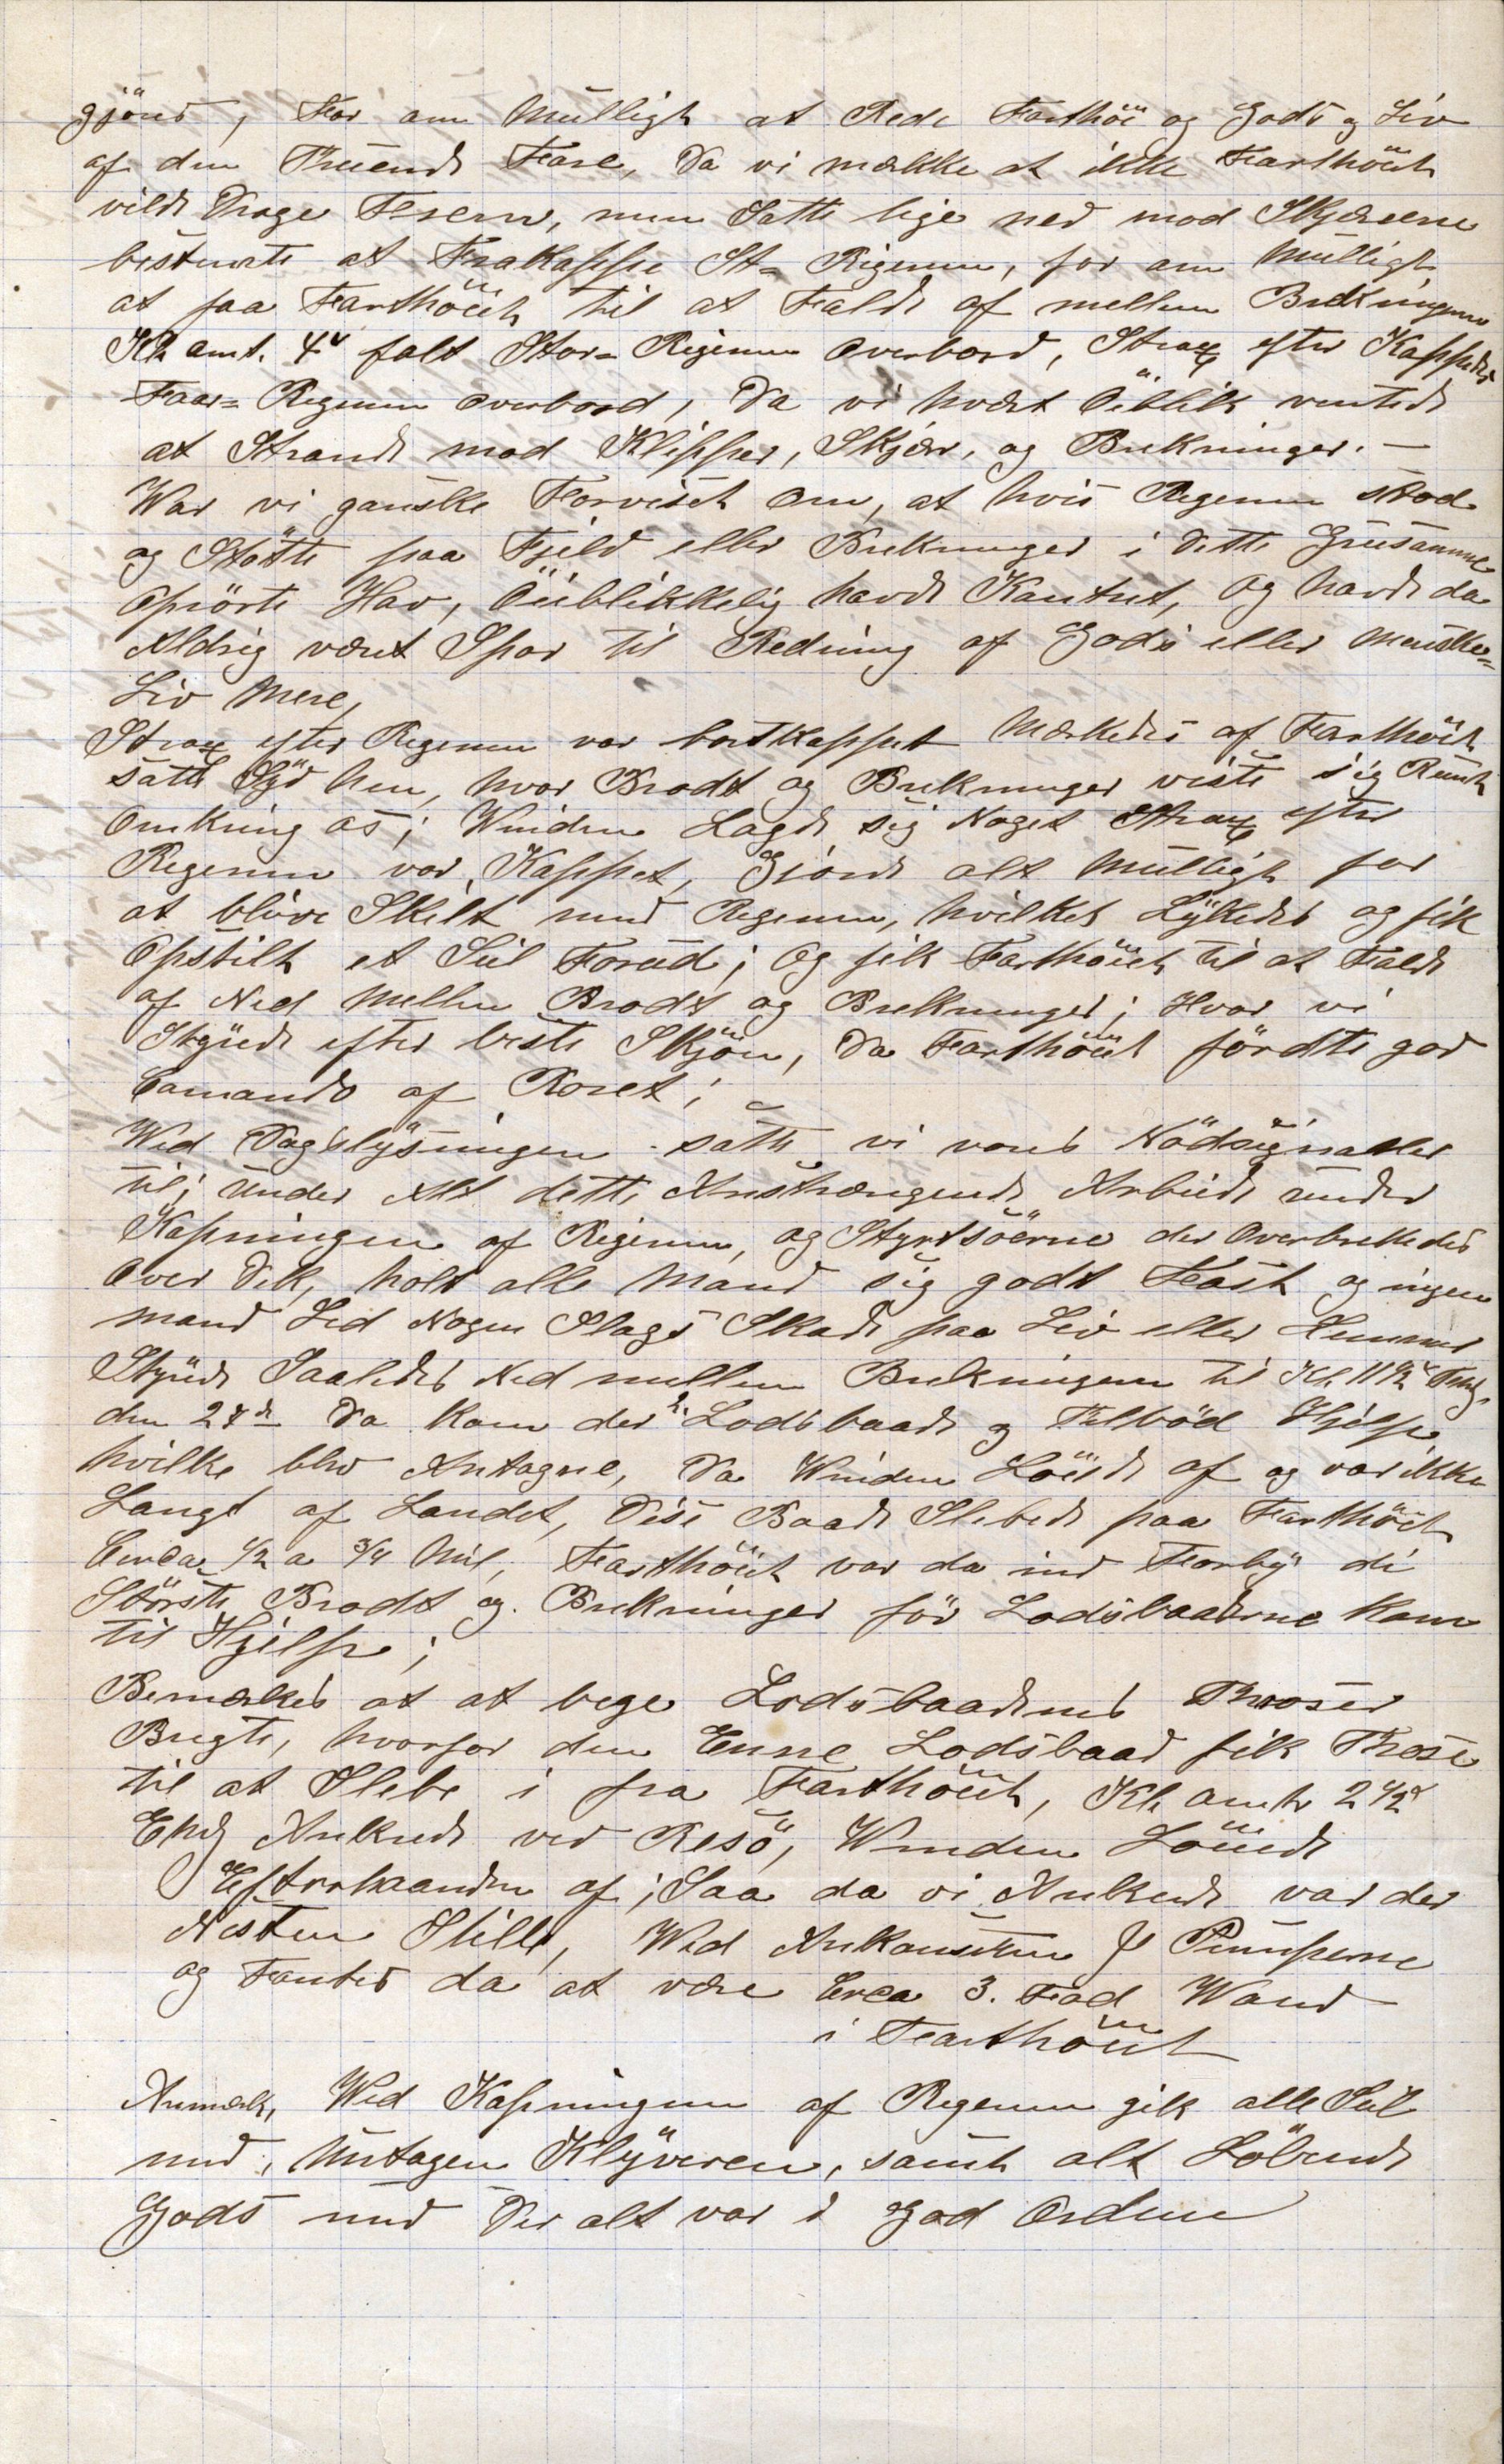 gjöres, For om Mulligh at Rede Farthöi og Gods og Liv
af den Truende Fare, Da vi mærkke at ikke Farthöiet
vilde Drage Feseren, men Satte lige ned mod Skjærerne
bestemte at Frakappe St= Rigenen, for om Mulligh
at faa Farthöiet til at Falde af mellem Brekningerne
Kl. omt. 4" falt Stor= Rigenen Overbord, Strax efter Kappedes
Faar= Rigenen Overbord, Da vi hvært Öiblik ventede
at Strande mod Klipper, Skjær, og Brekninger. —
War vi ganske Forviset Om, at hvis Rigenen stod
og Stötte paa Fjeld eller Brekninger i dette Grusamme
Opörte Hav, Öiblikkelig havde Kantret, og havde da
Aldrig været Spor til Redning af Gods eller Menske=
Liv Mere,
Strax efter Rigenen var bortkappet Mærkedes af Farthöiet
satte Syd hen, hvor Brodt og Brekninger viste sig Rundt
Omkring os; Winden Lagde sig Noget Strax efter
Rigenen var Kappet, Gjorde alt Mulligh for
at blive Skilt med Rigenen, hvilket Lykkedes og fik
Opstilt et Seil Forud; og fik Farthöiet til at Falde
af Ned Mellem Brodt og Brekninger; Hvor vi
Styrede efter beste Skjön, Da Farthöiet fördte god
Comando af Roret;
Wed Dagslysningen satte vi vores Nödsignaler
til; Under Alt dette Anstrængende Arbeide under
Kapningen af Rigenen, og Styrtsöerne der Overbrekkedes
Over Dek, holt alle Mand sig godt Fast og ingen
Mand Led Nogen Slags Skade paa Liv eller Lemmer
Styrede Saaledes Ned mellem Brekningerne til Kl. 11 1/2 Fmdg.
den 24de Da kom der 2. Lodsbaade og Tilböd Hjelp
hvilke blev Antagne, Da Winden Löiede af og var ikke
Langt af Landet, Disse Baade Slebede paa Farthöiet
Circa 1/2 a 3/4 Mil, Farthöiet var da ind Forby di
Störste Brodt og Brekninger för Lodsbaadene kom
til Hjelp;
Bemærkes at at bege Lodsbaadenes Trosser
Bragte, hvorfor den Enne Lodsbaad fik Trosse
til at Slebe i fra Farthöiet, Kl. omtr 2 1/2
Ehdg Ankrede ved Resö, Winden Löiede
Efterhaanden af; Saa da vi Ankrede var der
Nesten Stille, Wed Ankomsten Pumperne
og Fantes da at være Circa 3. Fod Wand
i Farthöiet
Anmærk, Wed Kapningen af Rigenen gik alle Seil
med, Untagen Klyveren, samt alt Löbende
Gods med Der alt var i God Orden